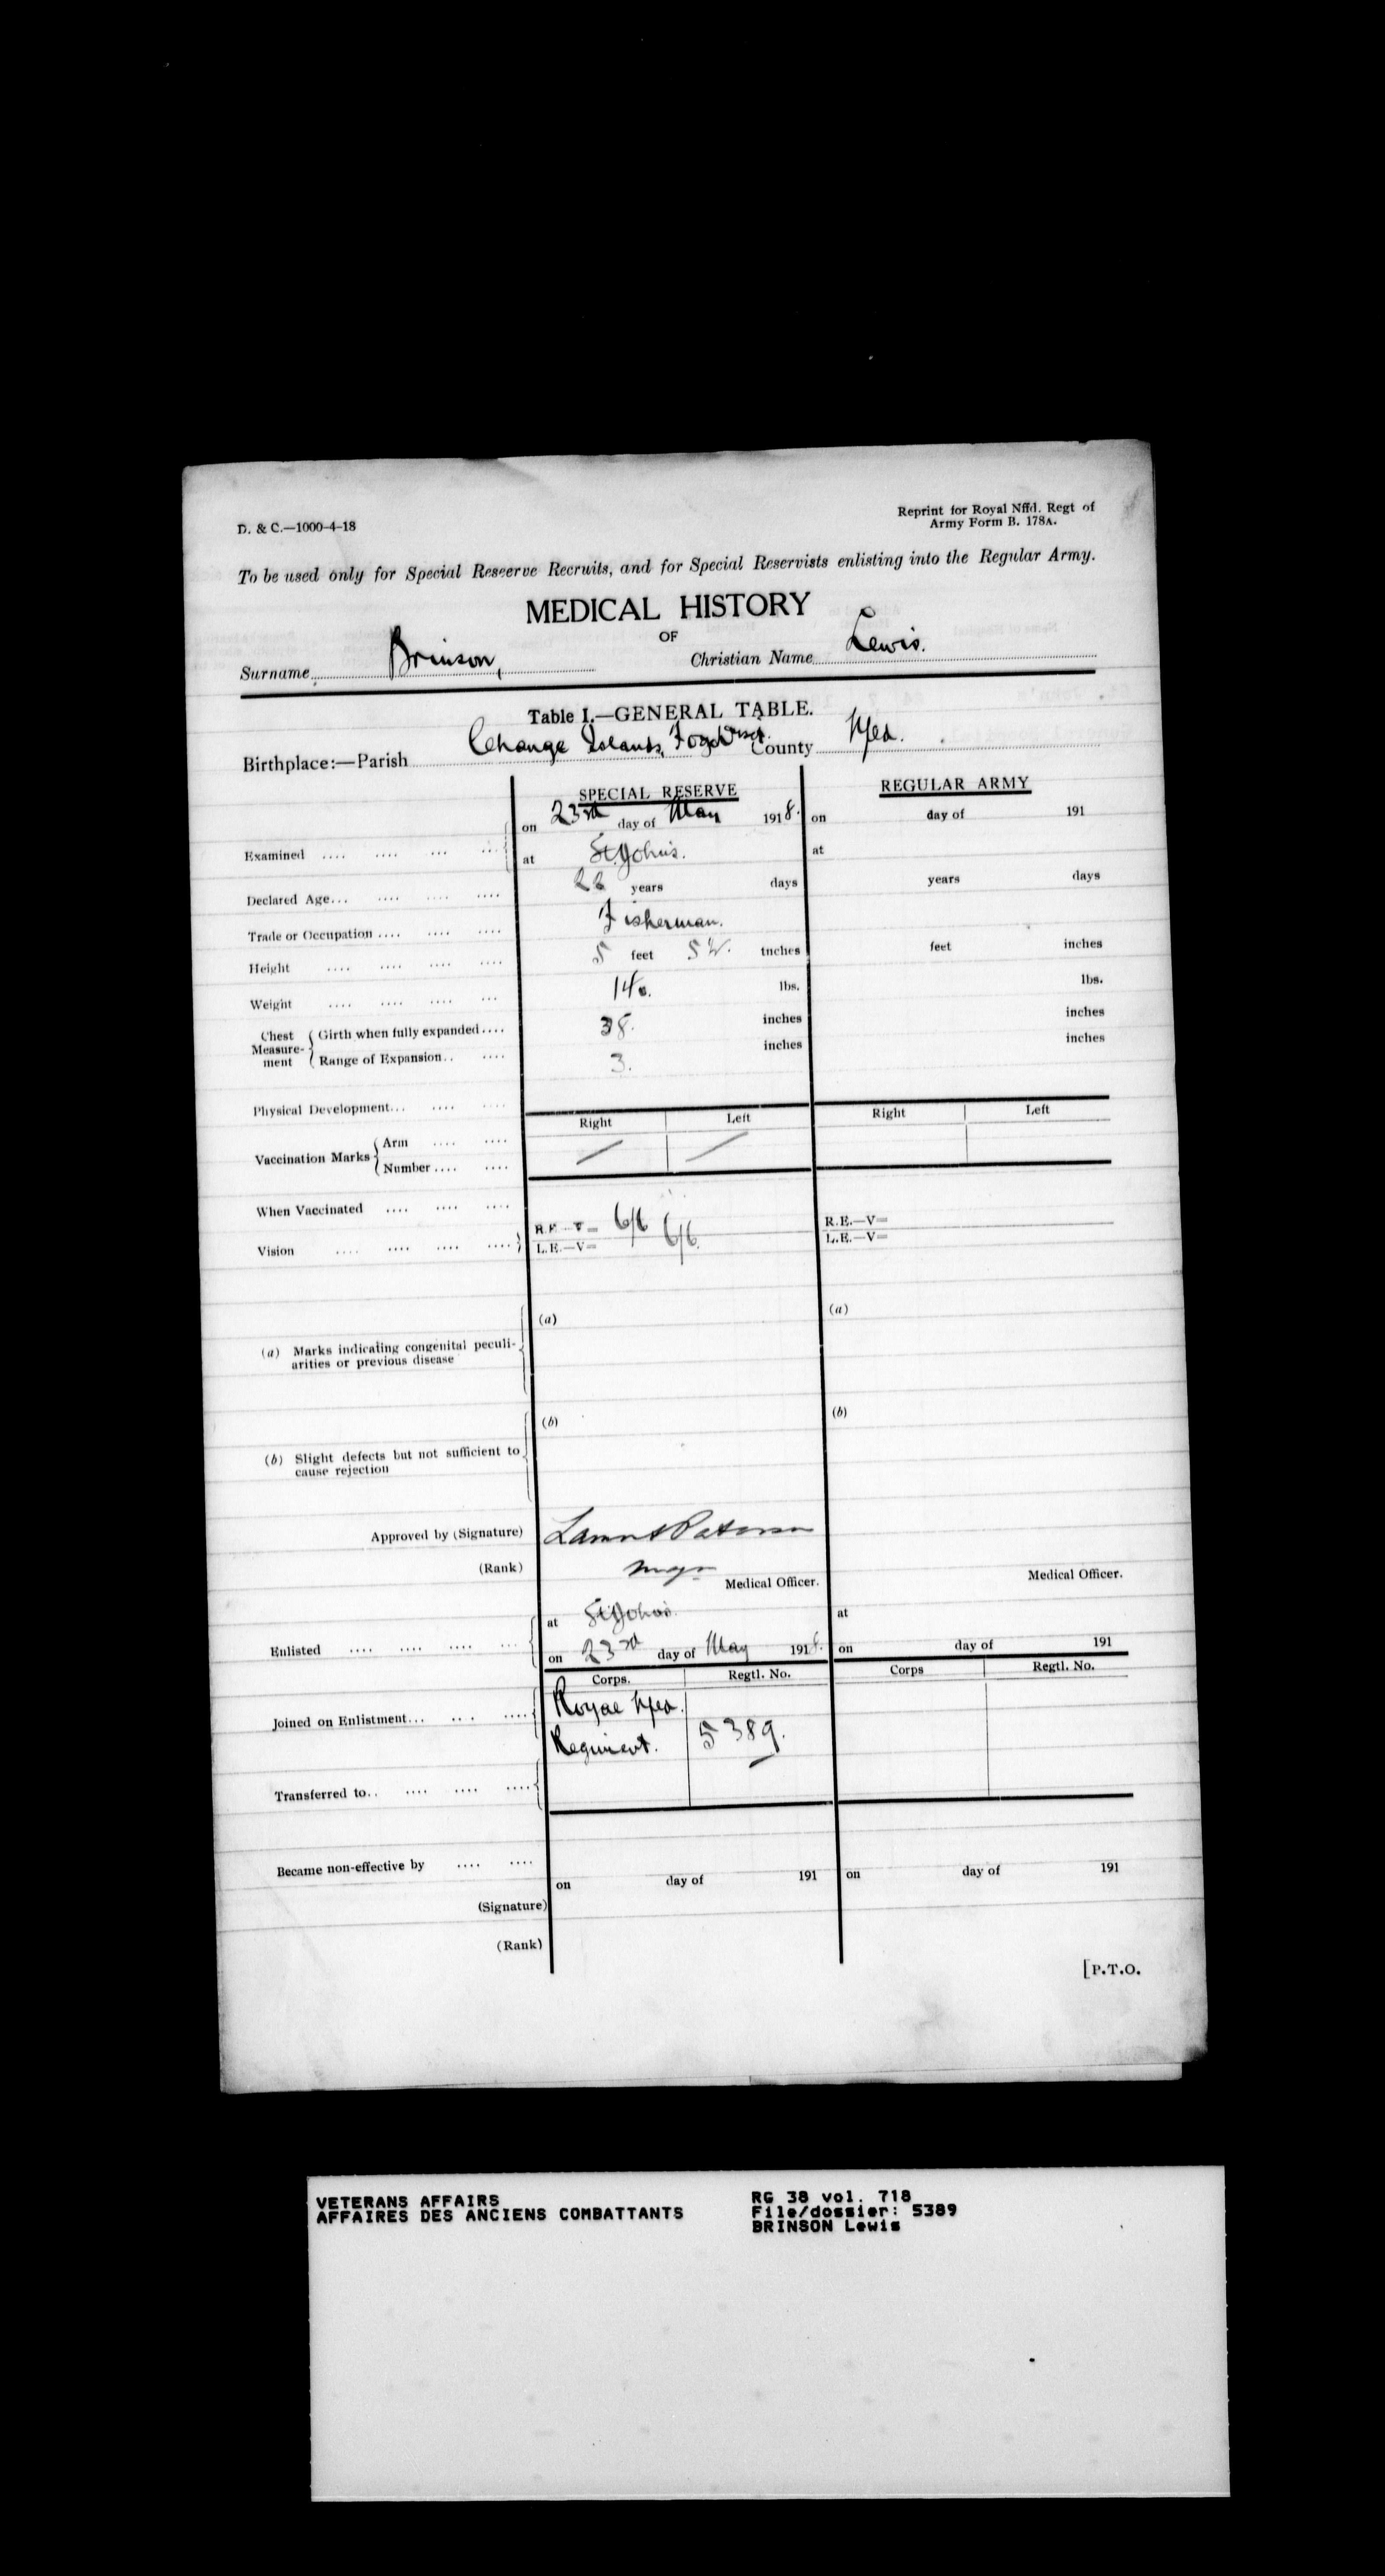 D. & C.—1000-4-18
Reprint for Royal Nffd. Regt of
Army Form B. 178A.
To be used only for Special Reserve Recruits, and for Special Reservists enlisting into the Regular Army.
MEDICAL HISTORY
OF
Surname Brinson, Christian Name Lewis.
Table I.—GENERAL TABLE.
Birthplace:—Parish Change Islands, Fogo County Nfld.
SPECIAL RESERVE REGULAR ARMY
on 23rd day of May 1918. on day of 191
Examined at St. John's. at
Declared Age 22 years days years days
Trade or Occupation Fisherman.
Height 5 feet 5½. inches feet inches
Weight 140. lbs. lbs.
Chest Measurement Girth when fully expanded 38. inches inches
Range of Expansion 3. inches inches
Physical Development
Right Left Right Left
Vaccination Marks Arm
Number
When Vaccinated
Vision R.E.—V= 6/6 R.E.—V=
L.E.—V= 6/6. L.E.—V=
(a) Marks indicating congenital peculi-
arities or previous disease (a) (a)
(b) Slight defects but not sufficient to
cause rejection (b) (b)
Approved by (Signature) Lamont Paterson
(Rank) Major Medical Officer. Medical Officer.
Enlisted at St. John's. at
on 23rd day of May 1918. on day of 191
Corps. Regtl. No. Corps Regtl. No.
Joined on Enlistment Royal Nfld.
Regiment. 5389.
Transferred to
Became non-effective by
on day of 191 on day of 191
(Signature)
(Rank)
[P.T.O.
VETERANS AFFAIRS
AFFAIRES DES ANCIENS COMBATTANTS
RG 38 vol. 718
File/dossier: 5389
BRINSON Lewis